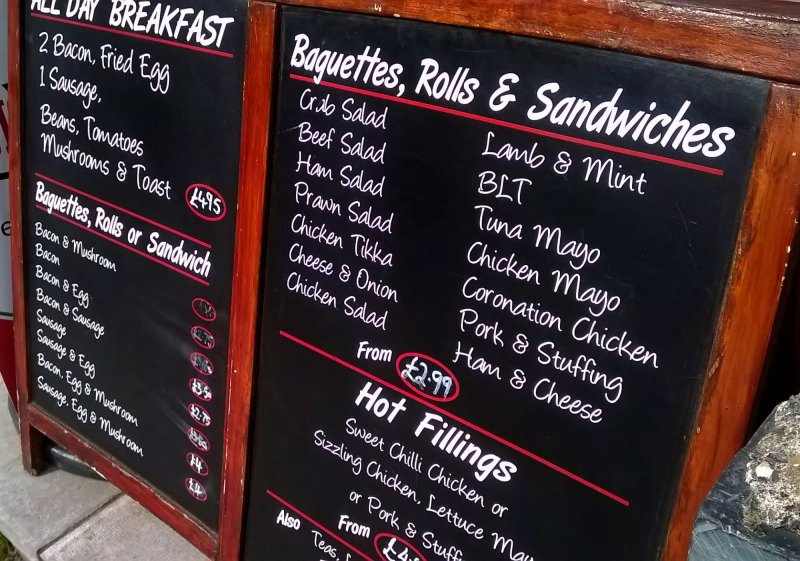 ALL DAY BREAKFAST
2 Bacon, Fried Egg
1 Sausage,
Beans, Tomatoes
Mushrooms & Toast £4.95
Baguettes, Rolls or Sandwich
Bacon & Mushroom
Bacon
Bacon & Egg
Bacon & Sausage
Sausage
Sausage & Egg
Bacon, Egg & Mushroom £4
Sausage, Egg & Mushroom £4
Baguettes, Rolls & Sandwiches
Crab Salad
Beef Salad
Ham Salad
Prawn Salad
Chicken Tikka
Cheese & Onion
Chicken Salad
Lamb & Mint
BLT
Tuna Mayo
Chicken Mayo
Coronation Chicken
Pork & Stuffing
Ham & Cheese
From £2.99
Hot Fillings
Sweet Chilli Chicken or
Sizzling Chicken, Lettuce Mayo
or Pork & Stuff
From
Also
Teas,